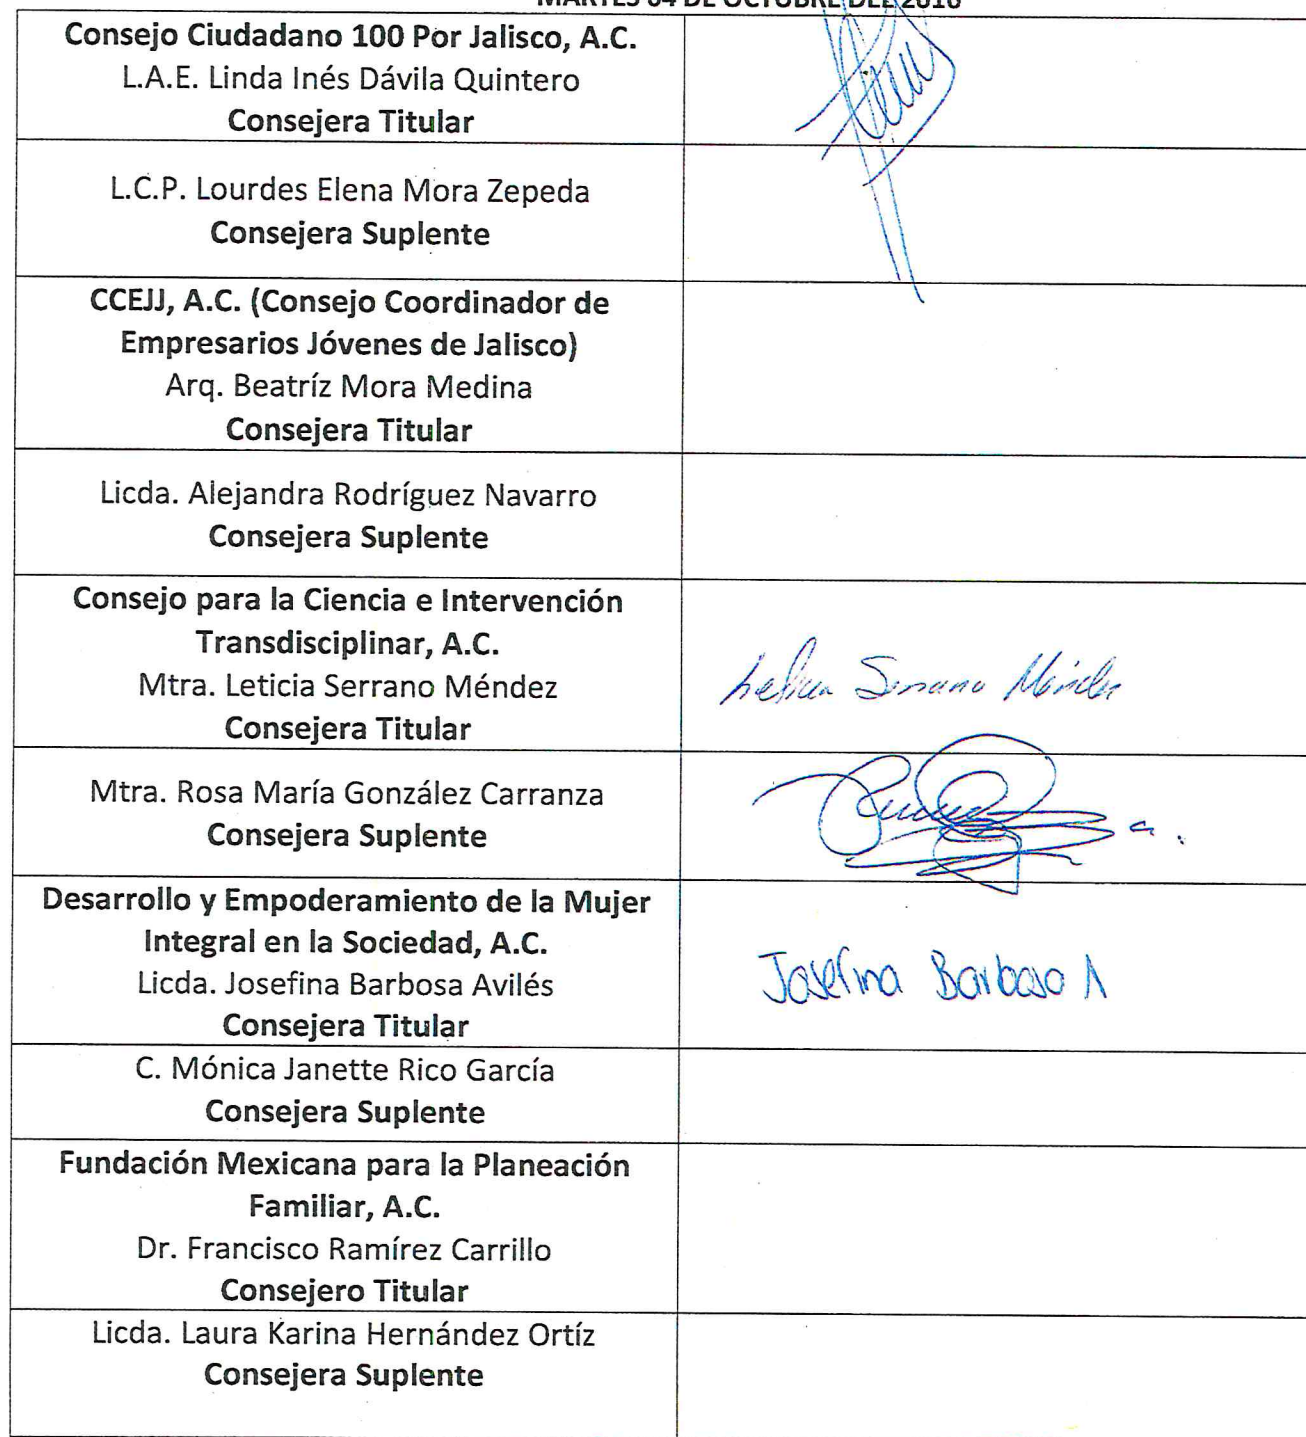 MARTES 04 DE OCTUBRE DEL 2016
Consejo Ciudadano 100 Por Jalisco, A.C.
L.A.E. Linda Inés Dávila Quintero
Consejera Titular
L.C.P. Lourdes Elena Mora Zepeda
Consejera Suplente
CCEJJ, A.C. (Consejo Coordinador de
Empresarios Jóvenes de Jalisco)
Arq. Beatríz Mora Medina
Consejera Titular
Licda. Alejandra Rodríguez Navarro
Consejera Suplente
Consejo para la Ciencia e Intervención
Transdisciplinar, A.C.
Mtra. Leticia Serrano Méndez
Consejera Titular
Leticia Serrano Méndez
Mtra. Rosa María González Carranza
Consejera Suplente
Desarrollo y Empoderamiento de la Mujer
Integral en la Sociedad, A.C.
Licda. Josefina Barbosa Avilés
Consejera Titular
Josefina Barbosa A
C. Mónica Janette Rico García
Consejera Suplente
Fundación Mexicana para la Planeación
Familiar, A.C.
Dr. Francisco Ramírez Carrillo
Consejero Titular
Licda. Laura Karina Hernández Ortíz
Consejera Suplente